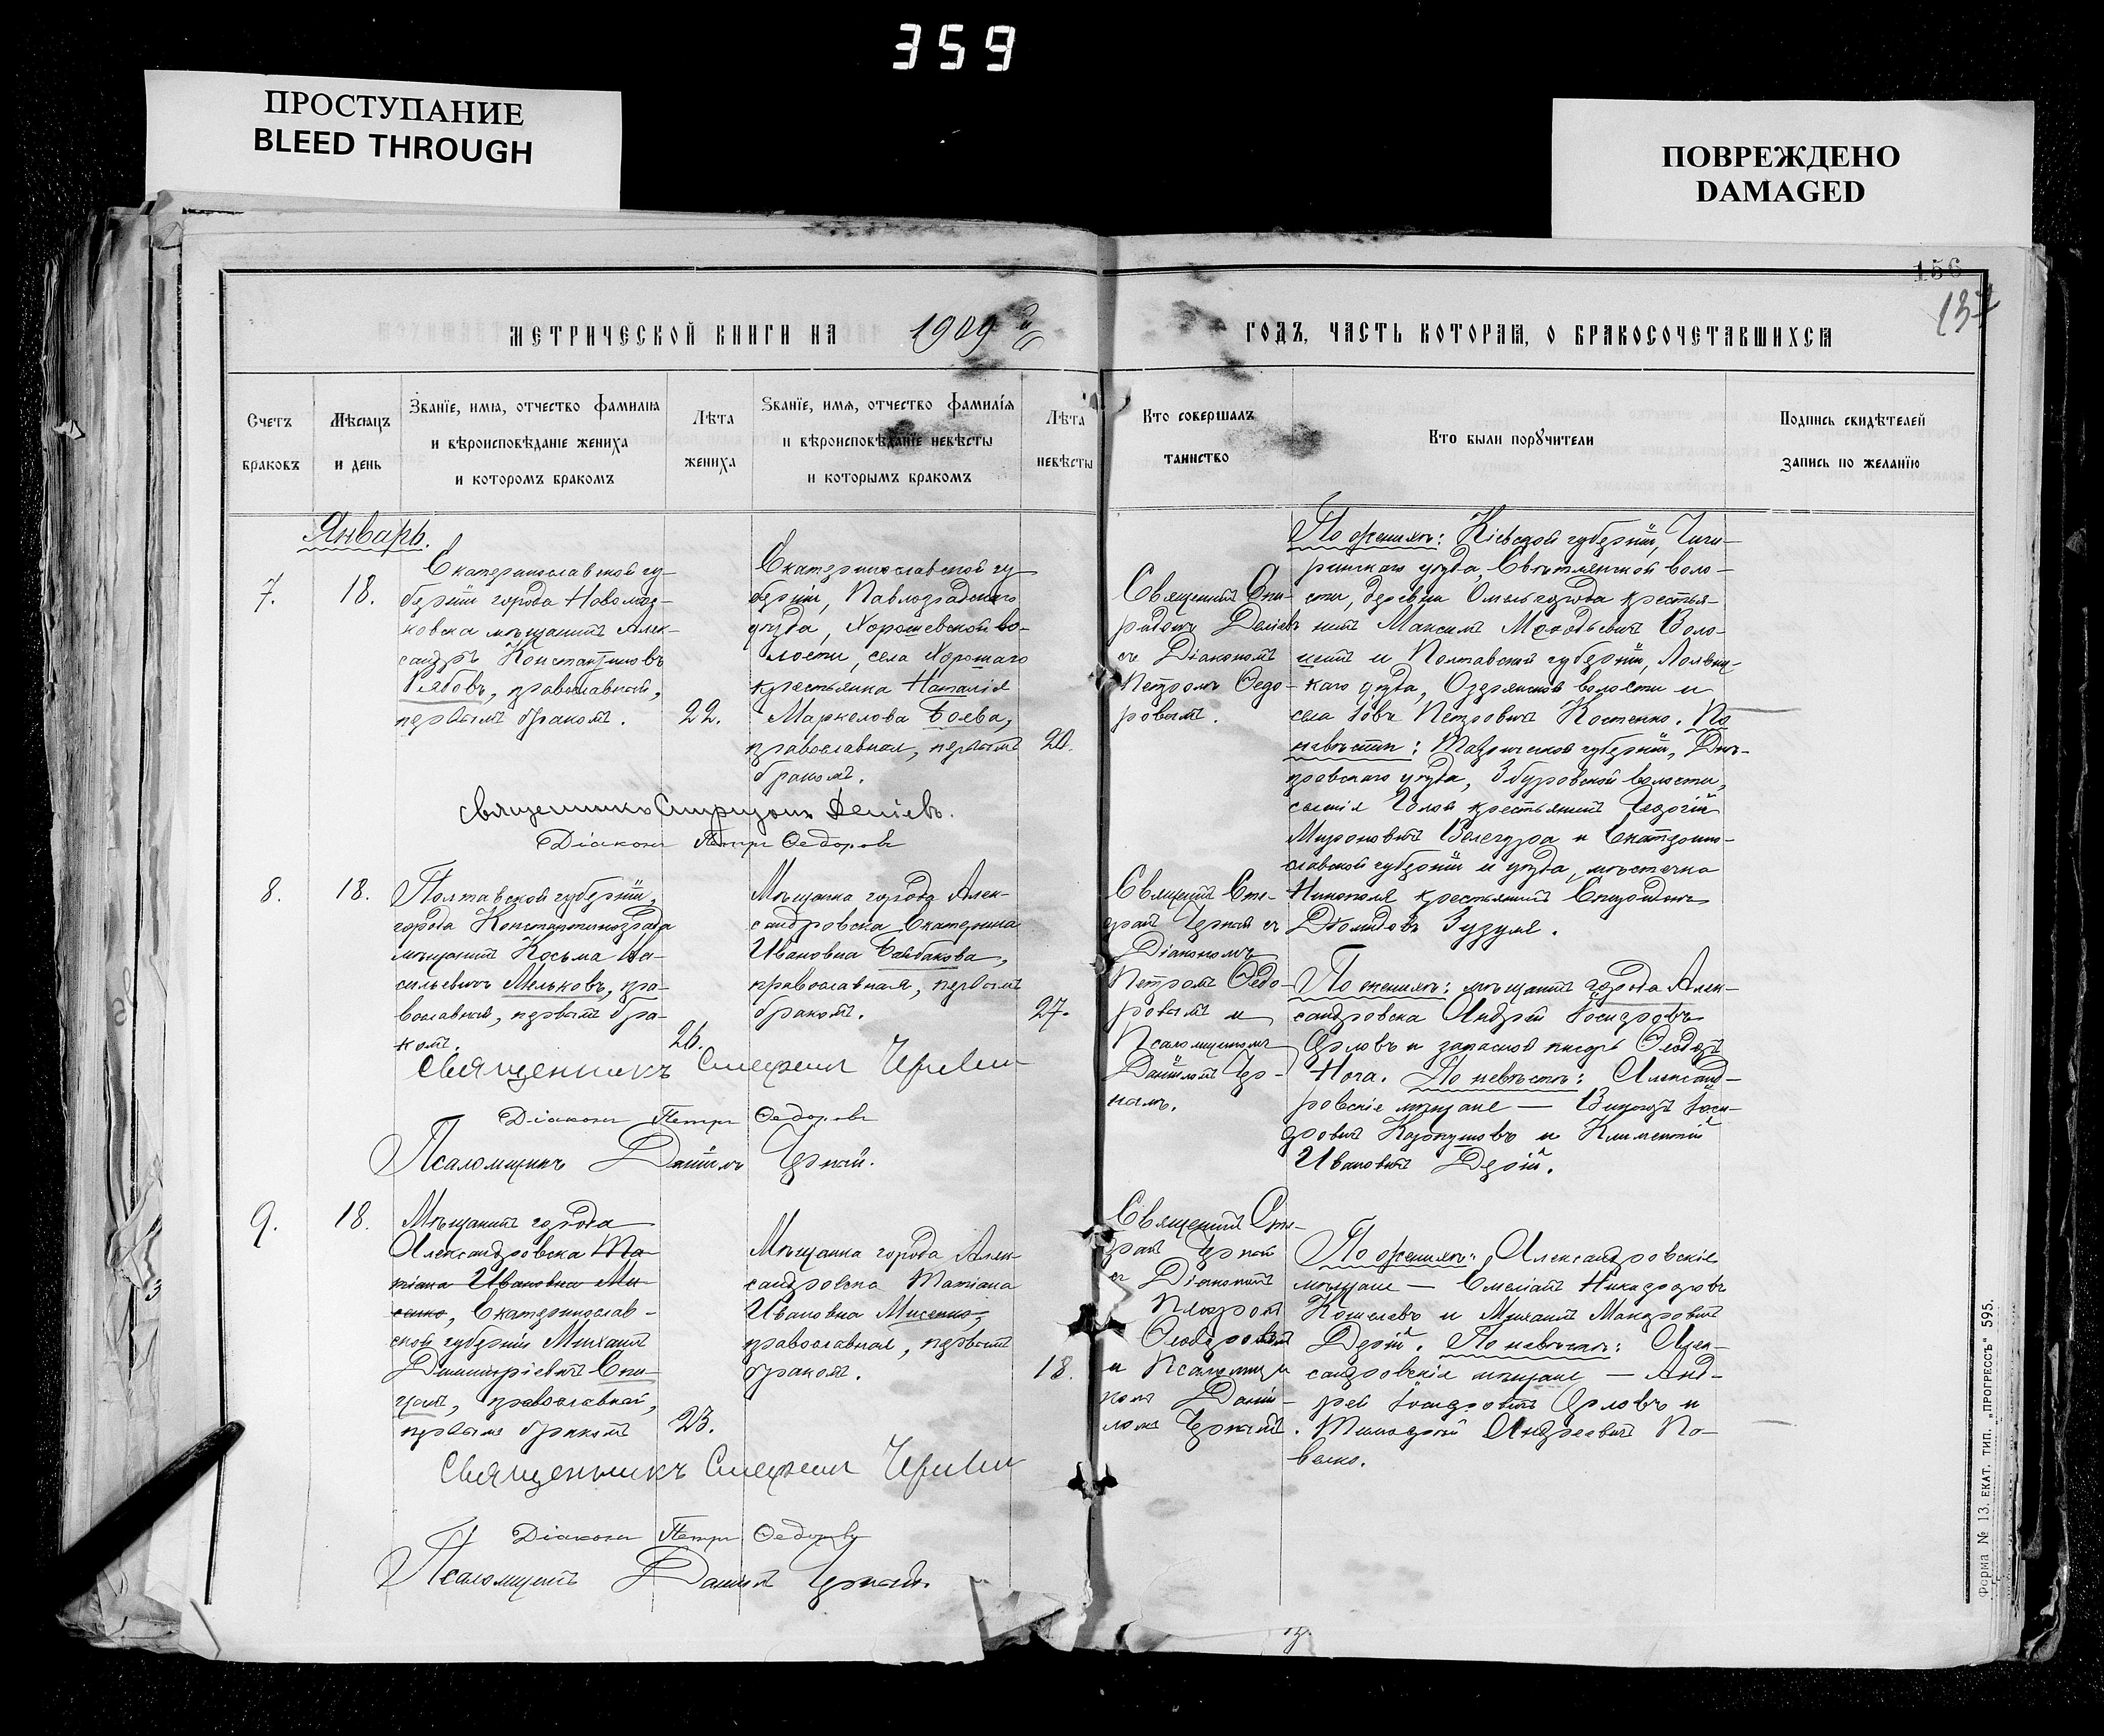 359
ПРОСТУПАНИЕ
BLEED THROUGH
ПОВРЕЖДЕНО
DAMAGED
156
137
МЕТРИЧЕСКОЙ КНИГИ НА 1909й
ГОДЪ, ЧАСТЬ КОТОРАЯ, О БРАКОСОЧЕТАВШИХСЯ
Счетъ
браковъ
Мѣсяцъ
и день
Званіе, имя, отчество фамилія
и вѣроисповѣданіе жениха
и которомъ бракомъ
Лѣта
жениха
Званіе, имя, отчество фамилія
и вѣроисповѣданіе невѣсты
и которымъ бракомъ
Лѣта
невѣсты
Кто совершалъ
таинство
Кто были поручители
Подпись свидѣтелей
запись по желанію
Январь.
7.
18.
Екатеринославской гу-
берніи города Новомос-
ковска мѣщанинъ Алек-
сандръ Константиновъ
Рябовъ, православный,
первымъ бракомъ.
22.
Екатеринославской гу-
берніи, Павлоградскаго
уѣзда, Хорошевской во-
лости, села Хорошаго
крестьянка Наталія
Маркелова Боева,
православная, первымъ
бракомъ.
20.
Священникъ Спи-
ридонъ Деліевъ
съ Діакономъ
Петромъ Ѳедо-
ровымъ.
По женихѣ: Кіевской губерніи, Чиги-
ринскаго уѣзда, Свѣтлянской воло-
сти, деревни Омельгорода крестья-
нинъ Максимъ Меѳодьевичъ Воло-
шинъ и Полтавской губерніи, Лохвиц-
каго уѣзда, Озерянской волости и
села Іовъ Петровичъ Костенко. По
невѣстѣ: Таврической губерніи, Днѣ-
провскаго уѣзда, Збурьевской волости,
селенія Голой крестьянинъ Георгій
Мироновичъ Велегура и Екатерино-
славской губерніи и уѣзда, мѣстечка
Никополя крестьянинъ Спиридонъ
Діомидовъ Зузуля.
Священникъ Спиридонъ Деліевъ.
Діаконъ Петръ Ѳедоровъ
8.
18.
Полтавской губерніи,
города Константинограда
мѣщанинъ Косьма Ва-
сильевичъ Мельковъ, пра-
вославный, первымъ бра-
комъ.
26.
Мѣщанка города Алек-
сандровска Екатерина
Ивановна Байбакова,
православная, первымъ
бракомъ.
27.
Священникъ Сте-
фанъ Черный съ
Діакономъ
Петромъ Ѳедо-
ровымъ и
Псаломщикомъ
Даніиломъ Чер-
нымъ.
По женихѣ: мѣщанинъ города Алек-
сандровска Андрей Іосифовъ
Орловъ и запасной писарь Ѳеодоръ
Нога. По невѣстѣ: Александ-
ровскіе мѣщане — Викторъ Іоси-
фовичъ Карпушовъ и Климентій
Ивановичъ Дерій.
Священникъ Стефанъ Черный
Діаконъ Петръ Ѳедоровъ
Псаломщикъ Даніилъ Черный.
9.
18.
Мѣщанинъ города
Александровска Та-
тіана Ивановна Ми-
сенко, Екатеринослав-
ской губерніи Михаилъ
Димитріевичъ Спи-
цынъ, православный,
первымъ бракомъ
23.
Мѣщанка города Алек-
сандровска Татіана
Ивановна Мисенко,
православная, первымъ
бракомъ.
18.
Священникъ Сте-
фанъ Черный
съ Діакономъ
Петромъ
Ѳеодоровымъ
и Псаломщи
комъ Даніи-
ломъ Чернымъ.
По женихѣ: Александровскіе
мѣщане — Емеліанъ Никифоровъ
Кошелевъ и Михаилъ Макаровичъ
Дерій. По невѣстѣ: Алек-
сандровскіе мѣщане — Анд-
рей Іосифовичъ Орловъ и
Тимоѳей Андреевичъ По-
венко.
Священникъ Стефанъ Черный
Діаконъ Петръ Ѳедоровъ
Псаломщикъ Даніилъ Черный.
Форма № 13. ЕКАТ. ТИП. „ПРОГРЕССЪ“ 595.